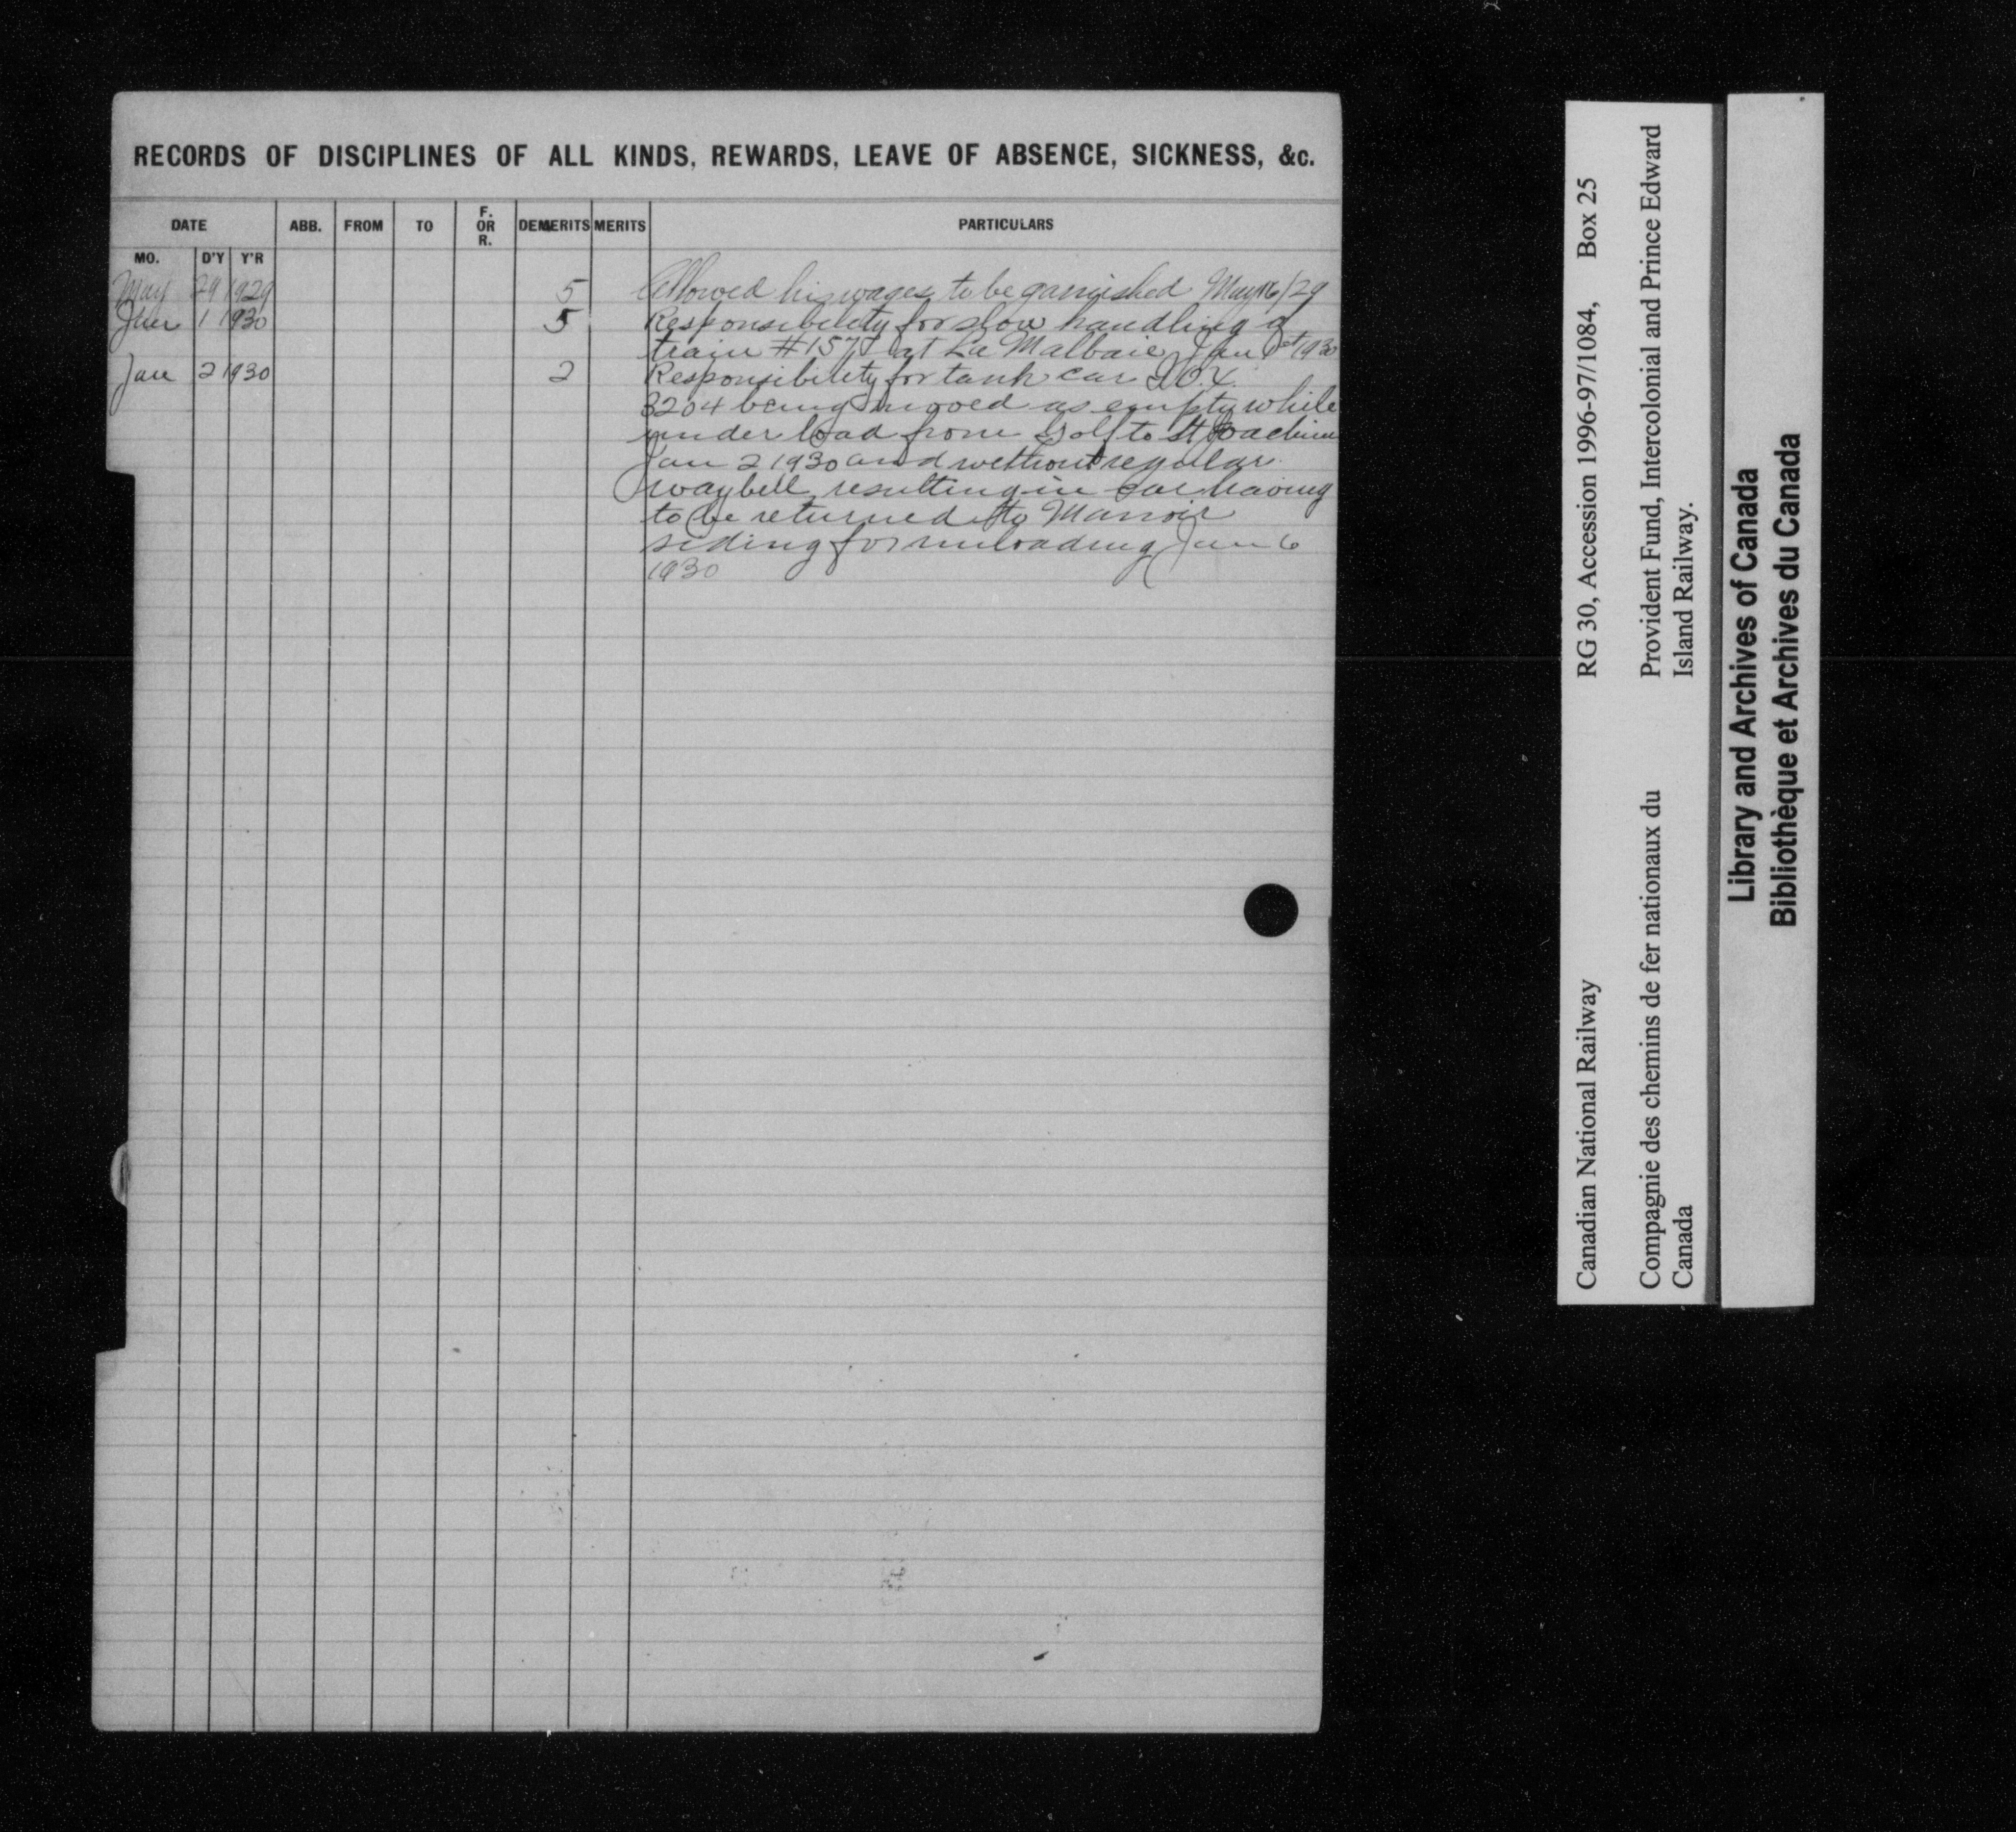 RECORDS OF DISCIPLINES OF ALL KINDS, REWARDS, LEAVE OF ABSENCE, SICKNESS, &c.
DATE ABB. FROM TO F. OR R. DEMERITS MERITS PARTICULARS
MO. D'Y Y'R
May 29 1929 5 Allowed his wages to be garnished May 16/29
Jan 1 1930 5 Responsibility for slow handling of
train # at La Malbaie Jan 1st 1930
Jan 2 1930 2 Responsibility for tank car
3204 being moved as empty while
under load from Golf to St Joachim
Jan 2 1930 and without regular
waybill resulting in car having
to be returned to Manoir
siding for unloading Jan 6
1930
Canadian National Railway RG 30, Accession 1996-97/1084, Box 25
Compagnie des chemins de fer nationaux du Provident Fund, Intercolonial and Prince Edward
Canada Island Railway.
Library and Archives of Canada
Bibliothèque et Archives du Canada